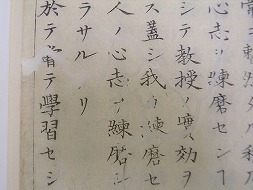 心志ヲ練磨センコ
シテ教授ノ実効ヲ
ス蓋シ我ノ練磨セ
人ノ心志ヲ練磨シ
ラサルナリ
於テ常テ學習セシ